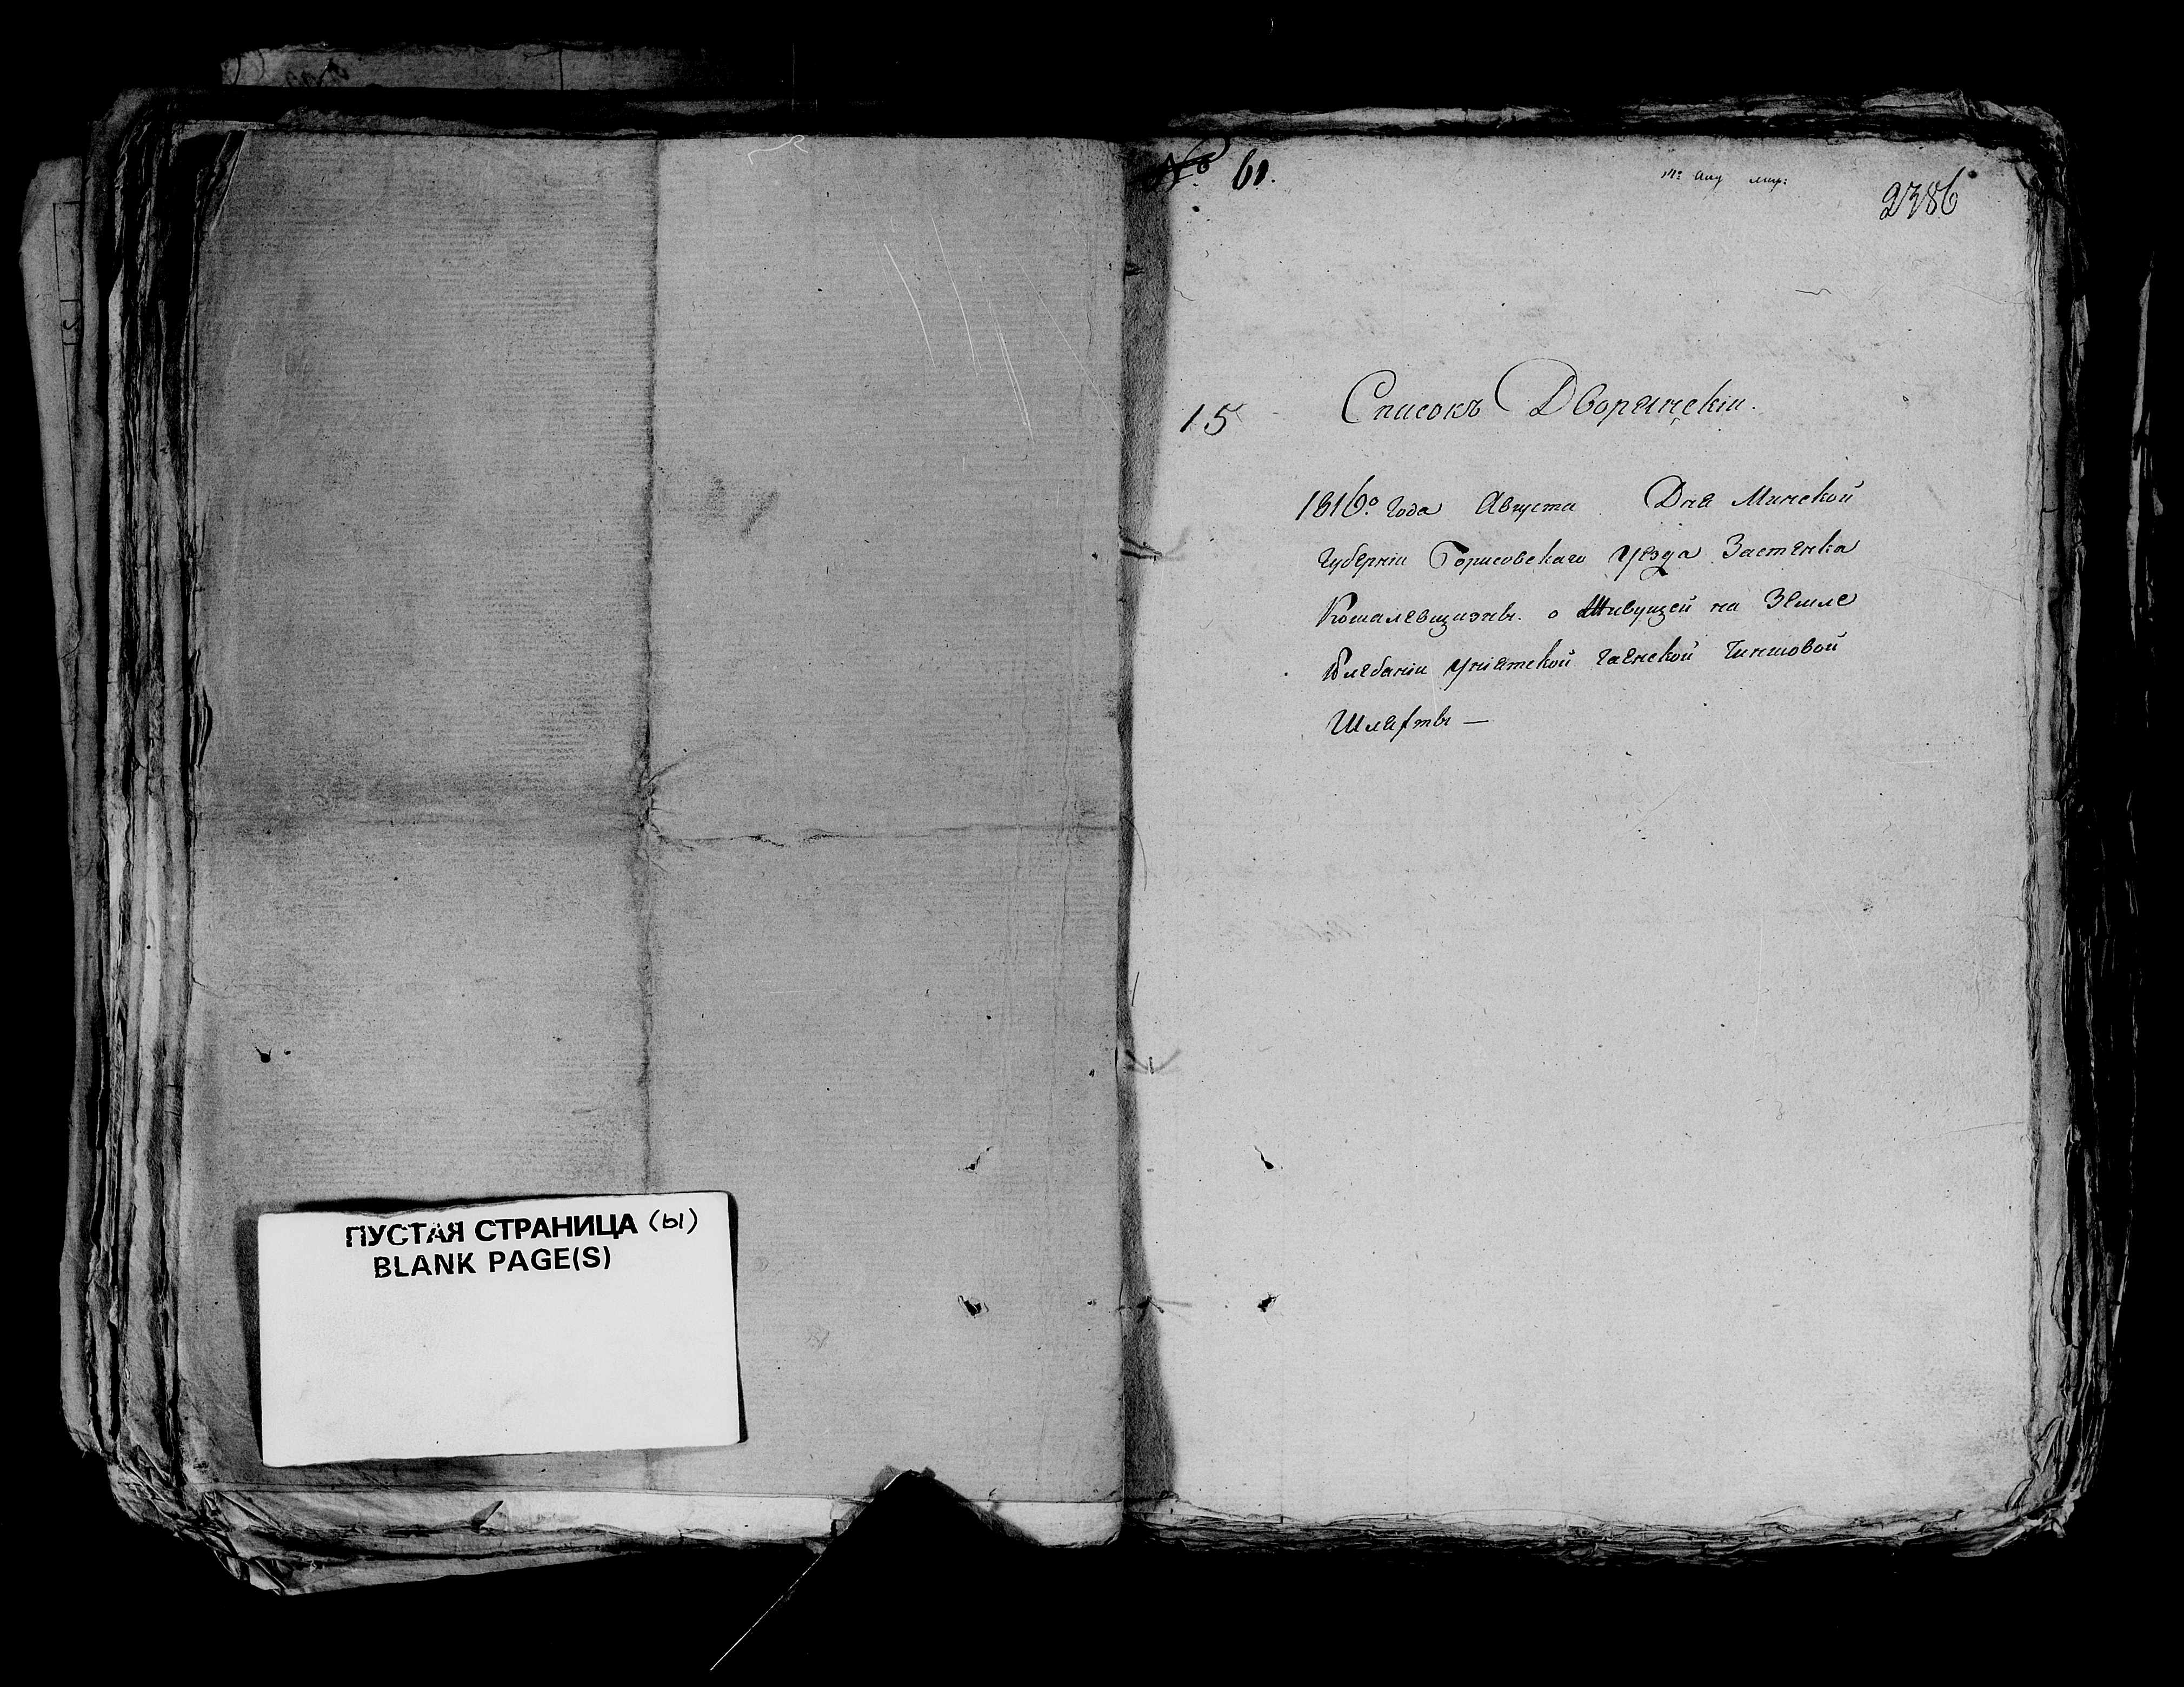 ПУСТАЯ СТРАНИЦА (ы)
BLANK PAGE(S)
№ 61.
2386
15
Списокъ Дворянскіи.
1816о. Года Августа Дня Минской
Губерніи Борисовскаго Уезда Застенка
Комалевщизны. о Живущей на Земле
Плебаніи Уніятской Гаенской Чиншовой
Шляхты —